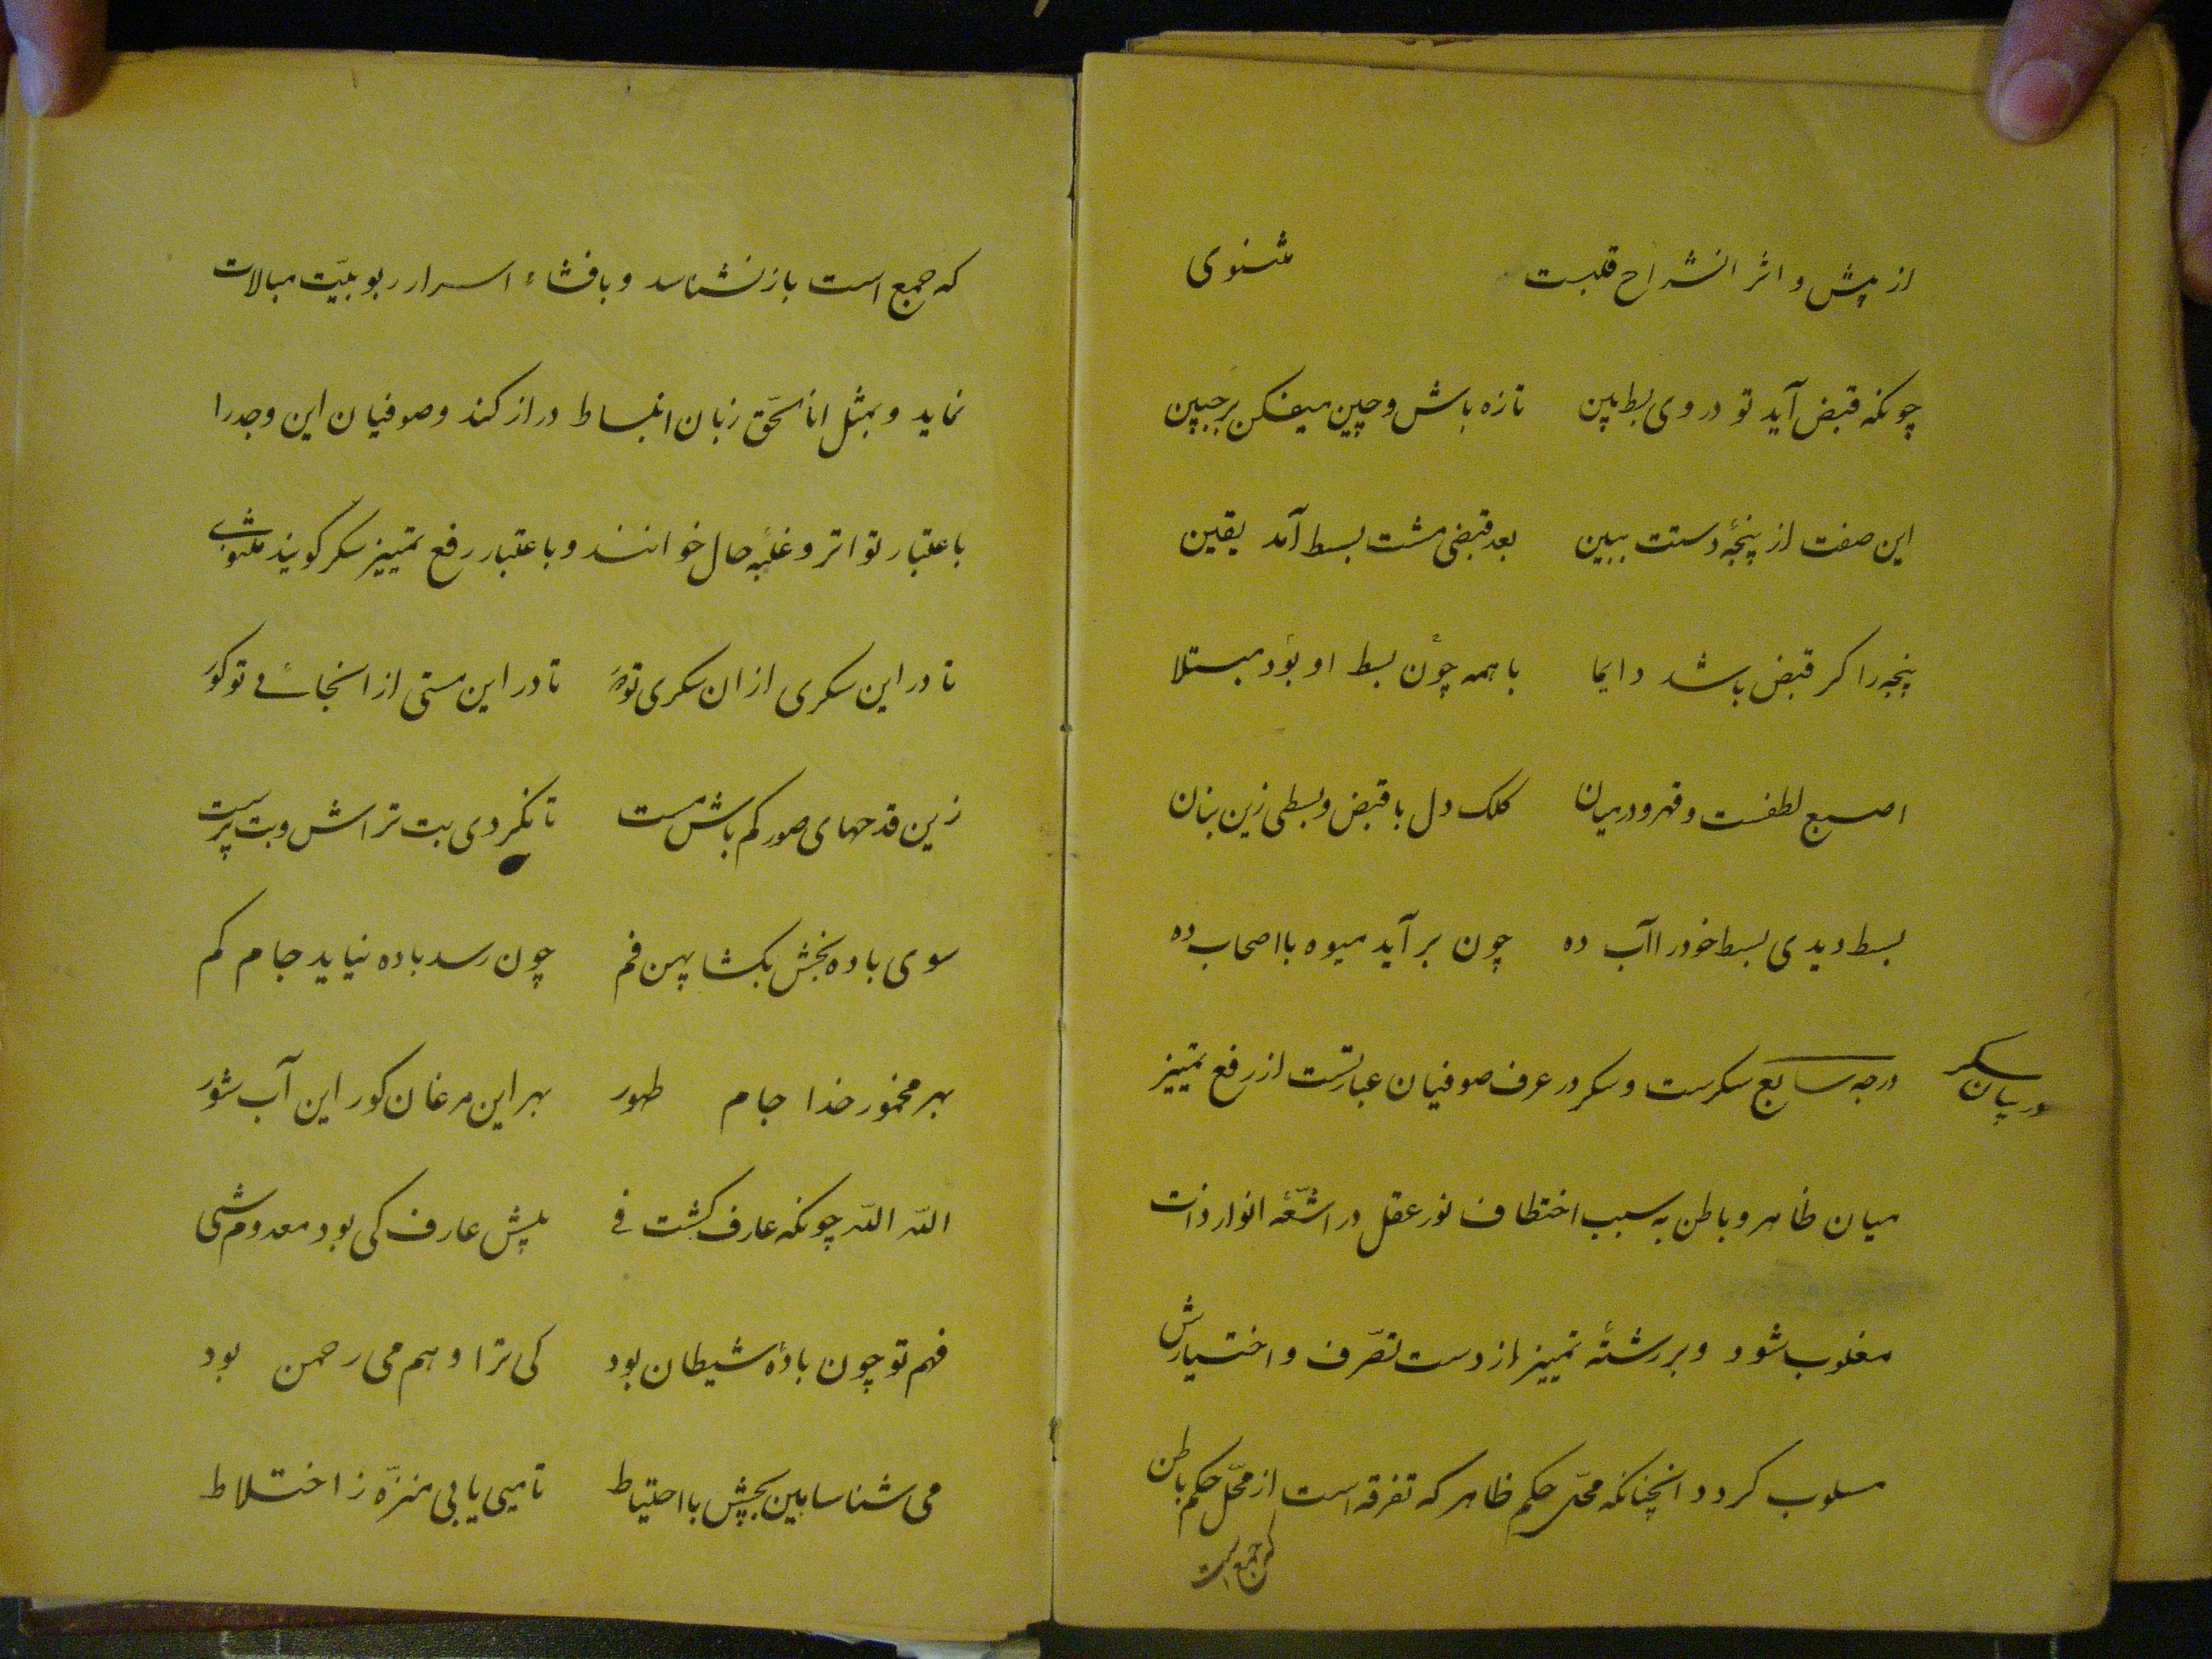 از پیش و اثر انشراح قلبست مثنوی
چونکه قبض آید تو در وی بسط بین تازه باش و چین میفکن بر جبین
این صفت از پنجهٔ دستت ببین بعد قبض مشت بسط آمد یقین
پنجه را کر قبض باشد دایما با همه چون بسط او بود مبتلا
اصبع لطفست و قهر و درمیان کلک دل با قبض و بسطی زین بنان
بسط دیدی بسط خود را آب ده چون بر آید میوه با اصحاب ده
در بیان سکر
درجه سابع سکرست و سکر در عرف صوفیان عبارتست از رفع تمییز
میان ظاهر و باطن به سبب اختطاف نور عقل در اشعّهٔ انوار ذات
مغلوب شود و بر رشتهٔ تمییز از دست تصرّف و اختیارش
مسلوب کردد انچنانکه محلّ حکم ظاهر که تفرقه است از محلّ حکم باطن
که جمع است
که جمع است باز نشناسد و بافشاء اسرار ربوبیّت مبالات
نماید و بمثل انا الحّق زبان انبساط دراز کند و صوفیان این وجد را
باعتبار تواتر و غلبهٔ حال خوانند و باعتبار رفع تمییز سکر کویند مثنوی
تا در این سکری از ان سکری تو دور تا در این مستی از انجائے تو کور
زین قدحهای صور کم باش مست تا نکردی بت تراش و بت پرست
سوی باده بخش بکشا پهن فم چون رسد باده نیاید جام کم
بهر مخمور خدا جام طهور بهر این مرغان کور این آب شور
اللّه اللّه چونکه عارف کشت فے پیش عارف کی بود معدوم شئی
فهم تو چون بادهٔ شیطان بود کی ترا وهم می رحمن بود
می شناسا هین بچش با احتیاط تا میی یابی منزّه ز اختلاط